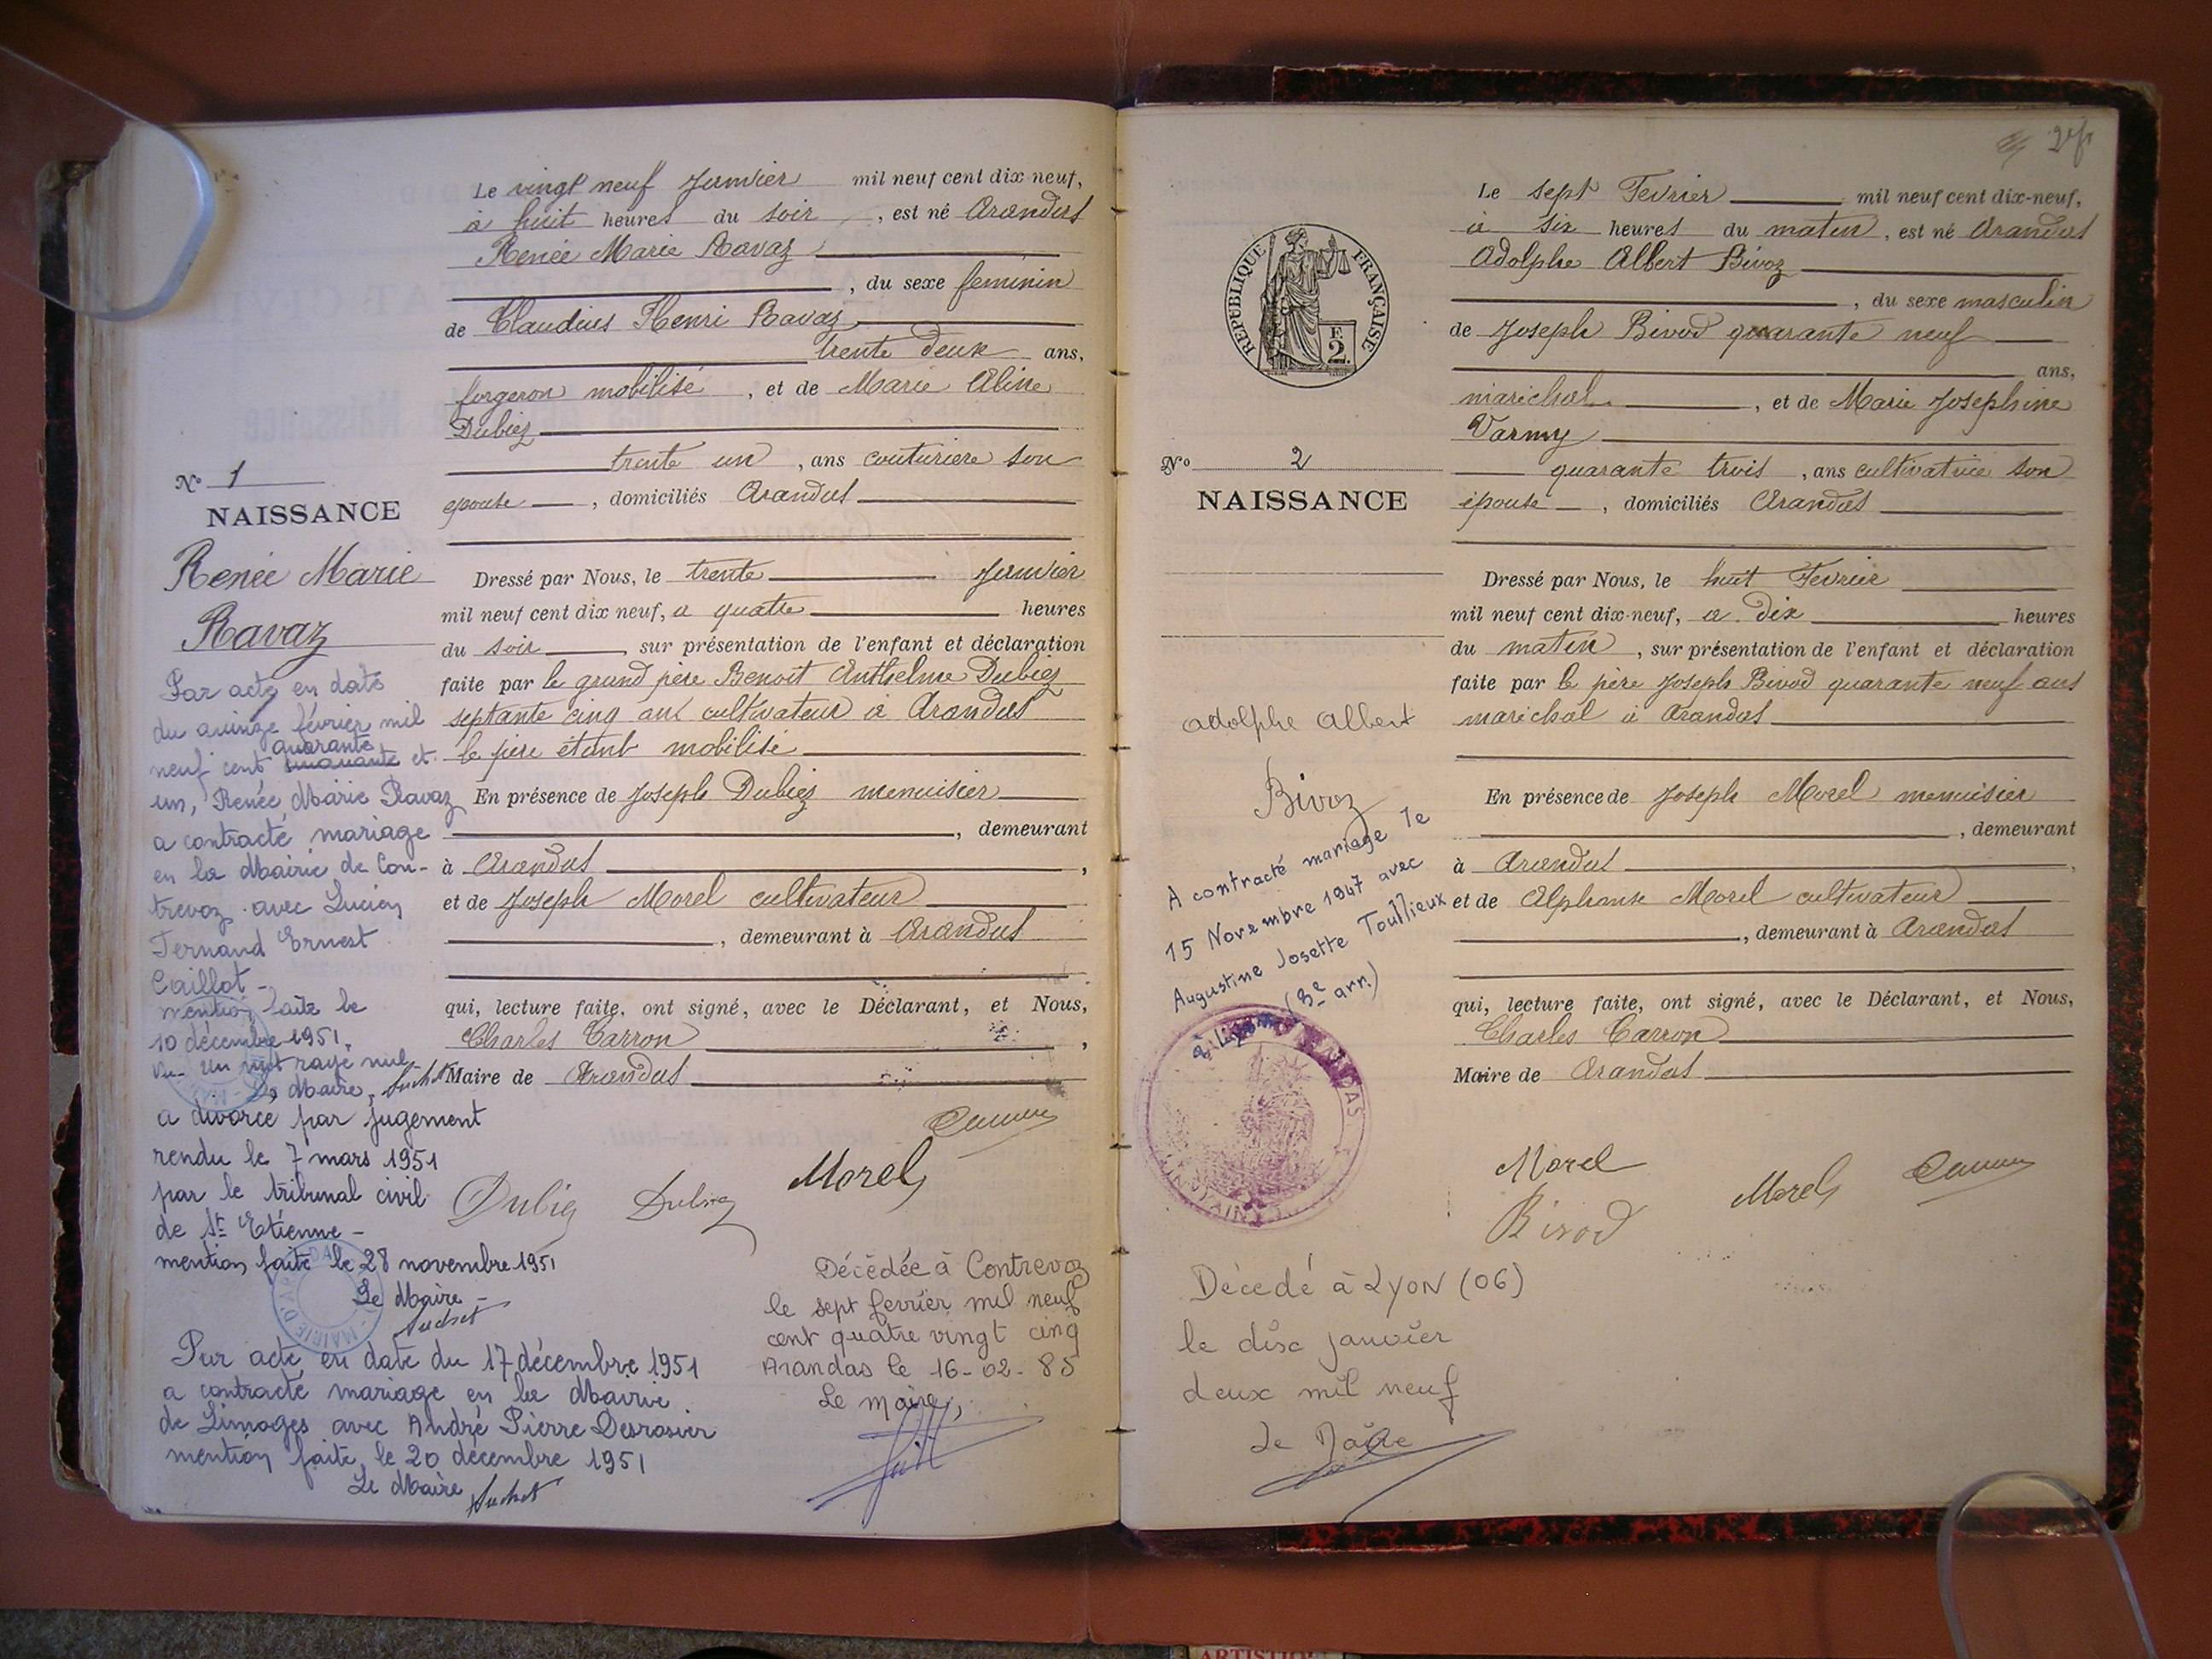 Le vingt neuf Janvier mil neuf cent dix-neuf,
à huit heures du soir, est né Arandas
Renée Marie Ravaz
, du sexe feminin
de Claudius Henri Ravaz
trente deux ans,
forgeron mobilisé, et de Marie Aline
Dubiez
trente un, ans couturiere son
epouse, domiciliés Arandas
Dressé par Nous, le trente Janvier
mil neuf cent dix neuf, a quatre heures
du soir, sur présentation de l'enfant et déclaration
faite par le grand père Benoit Anthelme Dubiez
septante cinq ans cultivateur à Arandas
le père étant mobilisé
En présence de Joseph Dubiez menuisier
, demeurant
à Arandas,
et de Joseph Morel cultivateur
, demeurant à Arandas
qui, lecture faite, ont signé, avec le Déclarant, et Nous,
Charles Carron,
Maire de Arandas
Morel
Dubiez Dubiez
No 1
NAISSANCE
Renée Marie
Ravaz
Par acte en date
du quinze février mil
quarante
neuf cent cinquante et
un, Renée Marie Ravaz
a contracté mariage
en la Mairie de Con-
trevoz avec Lucien
Fernand Ernest
Caillot -
mention faite le
10 décembre 1951.
Un mot rayé nul
Le Maire, Suchet
a divorcé par jugement
rendu le 7 mars 1951
par le tribunal civil
de St Etienne -
mention faite le 28 novembre 1951
Le Maire -
Suchet
Par acte en date du 17 décembre 1951
a contracté mariage en la Mairie
de Limoges avec André Pierre Desrosier
mention faite le 20 décembre 1951
Le Maire Suchet
Décédée à Contrevoz
le sept ferrier mil neuf
cent quatre vingt cinq
Arandas le 16-02-85
Le maire,
RÉPUBLIQUE FRANÇAISE
E
2.
No 2
NAISSANCE
adolphe albert
Bivoz
A contracté mariage le
15 Novembre 1947 avec
Augustine Josette Toutlieux
à Lyon (3e arr.)
Le sept Fevrier mil neuf cent dix-neuf,
à six heures du matin, est né Arandas
Adolphe Albert Bivoz
, du sexe masculin
de Joseph Bivod quarante neuf
ans,
maréchal, et de Marie Josephine
Varmy
quarante trois, ans cultivatrice son
épouse, domiciliés Arandas
Dressé par Nous, le huit Fevrier
mil neuf cent dix-neuf, a dix heures
du matin, sur présentation de l'enfant et déclaration
faite par le père Joseph Bivod quarante neuf ans
maréchal à Arandas
En présence de Joseph Morel menuisier
, demeurant
à Arandas,
et de Alphonse Morel cultivateur
, demeurant à Arandas
qui, lecture faite, ont signé, avec le Déclarant, et Nous,
Charles Carron
Maire de Arandas
Morel
Bivod
Morel
Décedé à LYON (06)
le dix janvier
deux mil neuf
Le Maire
ARTISTIQUE